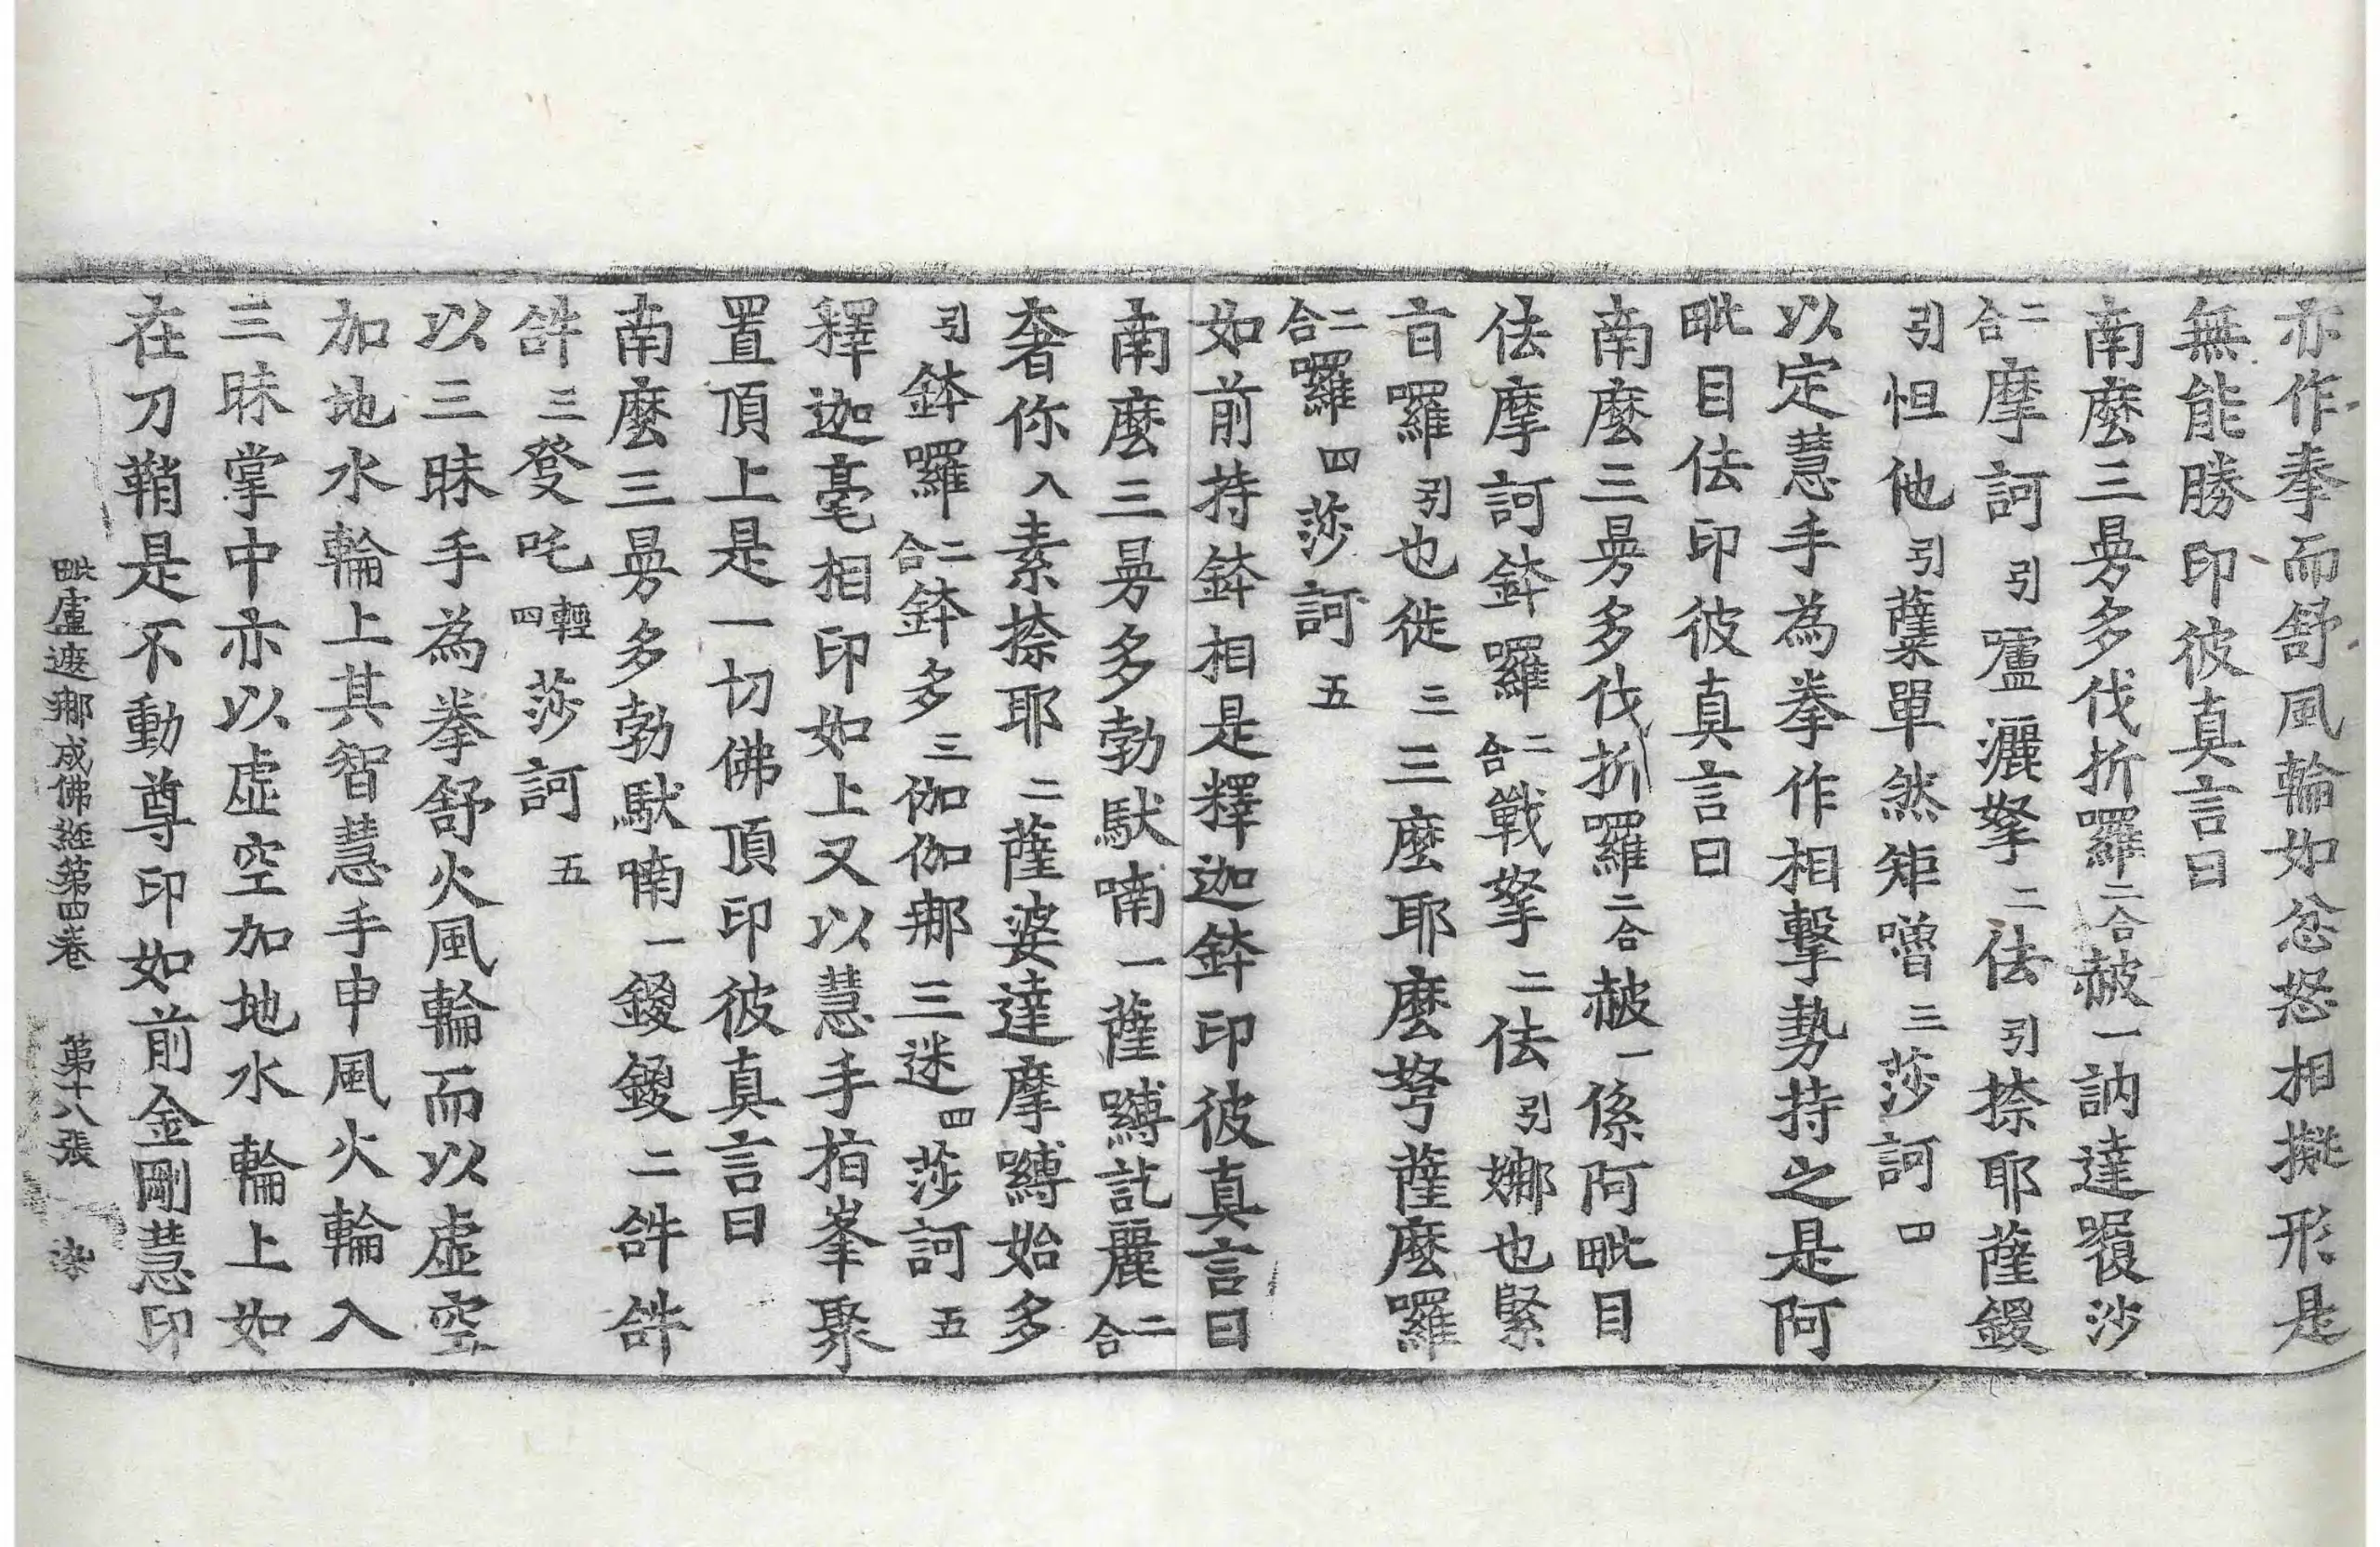 亦作拳而舒風輪如忿怒相擬形是
無能勝印彼真言曰
南麼三曼多伐折囉二合赧一訥達㗚沙
二合摩訶引嚧灑拏二佉引捺耶薩鍐
引怛他引蘖單然矩嚕三莎訶四
以定慧手為拳作相擊勢持之是阿
毗目佉印彼真言曰
南麼三曼多伐折囉二合赧一係阿毗目
佉摩訶鉢囉二合戰拏二佉引娜也緊
旨囉引也徙三三麼耶麼弩薩麼囉
二合囉四莎訶五
如前持鉢相是釋迦鉢印彼真言曰
南麼三曼多勃馱喃一薩嚩訖麗二合
奢你入素捺耶二薩婆達摩嚩始多
引鉢囉二合鉢多三伽伽那三迷四莎訶五
釋迦毫相印如上又以慧手指峯聚
置頂上是一切佛頂印彼真言曰
南麼三曼多勃馱喃一鍐鍐二𤙖𤙖
𤙖三發吒輕四莎訶五
以三昧手為拳舒火風輪而以虛空
加地水輪上其智慧手申風火輪入
三昧掌中亦以虛空加地水輪上如
在刀鞘是不動尊印如前金剛慧印
毗盧遮那成佛經第四卷 第十八張 染